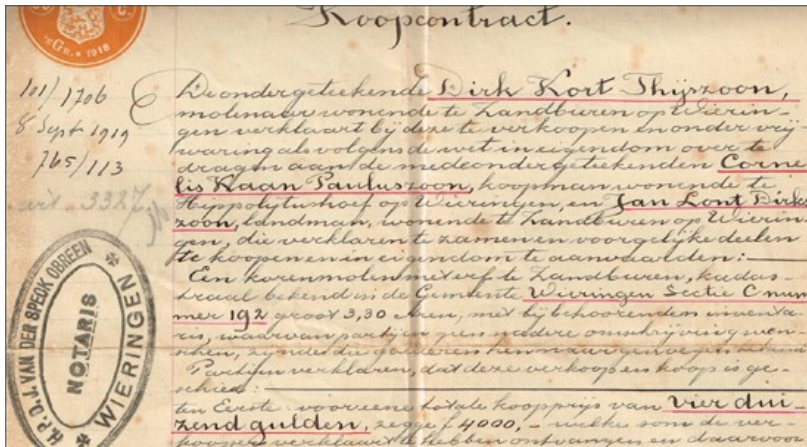 Koopcontract.
"Gr. * 1918
101/1706
8 Sept 1919
765/113
art. 3327
De ondergeteekende Dirk Kort Thijszoon,
molenaar wonende te Landburen op Wierin-
gen verklaart bij deze te verkoopen en onder vrij
waring als volgens de wet in eigendom over te
dragen aan de medeondergeteekenden Corne
lis Kaan Pauluszoon, koopman wonende te
Hippolytushoef op Wieringen, en Jan Lont Dirks
zoon, landman, wonende te Landburen op Wierin
gen, die verklaren te zamen en voor gelijke deelen
te koopen en in eigendom te aanvaarden:
Een korenmolen met erf te Landburen, kadas-
traal bekend in de Gemeente Wieringen Sectie C num
mer 192 groot 3,30 Aren, met bij behoorenden inventa
ris, waarvan partijen geen nadere omschrijving wen-
schen, zijnde die goederen hen naar genoegen bekend
Partijen verklaren, dat deze verkoop en koop is ge-
schied:
ten Eerste: voor eene totale koopprijs van vier dui-
zend gulden, zegge f 4000,- welke som de ver-
kooper verklaart te hebben ontvangen en daarvoor
H.P.O.J. VAN DER SPECK OBREEN
NOTARIS
WIERINGEN